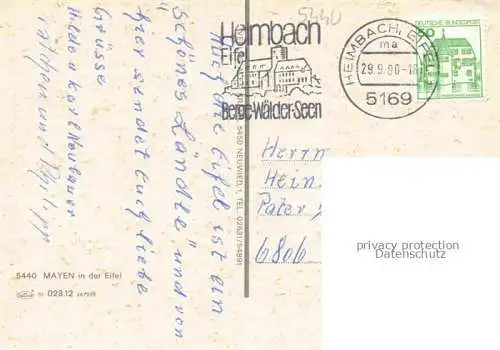 5440
Heimbach
Eifel
Berge-Wälder-Seen
HEIMBACH, EIFEL
ma
29.9.80-18
5169
DEUTSCHE BUNDESPOST
50
Auch die Eifel ist ein
"schönes Ländle" und von
hier sendet Euch liebe
Grüsse
Hilde u Karl Neubauer
Herrn
Hein
Pater
6806
privacy protection
Datenschutz
5450 NEUWIED 1, TEL. 02631/54891
5440 MAYEN in der Eifel
028.12